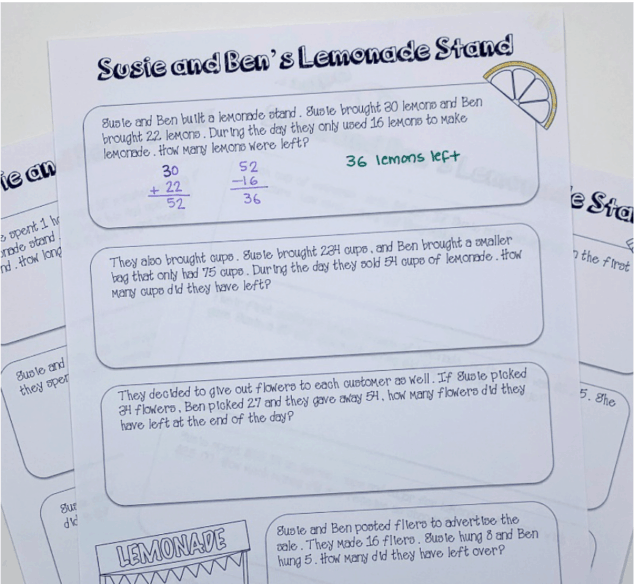 Susie and Ben's Lemonade Stand
Susie and Ben built a lemonade stand. Susie brought 30 lemons and Ben
brought 22 lemons. During the day they only used 16 lemons to make
lemonade. How many lemons were left?
30
+ 22
52
52
-16
36
36 lemons left
They also brought cups. Susie brought 234 cups, and Ben brought a smaller
bag that only had 75 cups. During the day they sold 54 cups of lemonade. How
many cups did they have left?
They decided to give out flowers to each customer as well. If Susie picked
34 flowers, Ben picked 27 and they gave away 54, how many flowers did they
have left at the end of the day?
LEMONADE
Susie and Ben posted fliers to advertise the
sale. They made 16 fliers. Susie hung 8 and Ben
hung 5. How many did they have left over?
ie an
e spent 1 h
nade stand
nd. How long
Susie and
they spen
Sus
did
e Sta
n the first
5. She